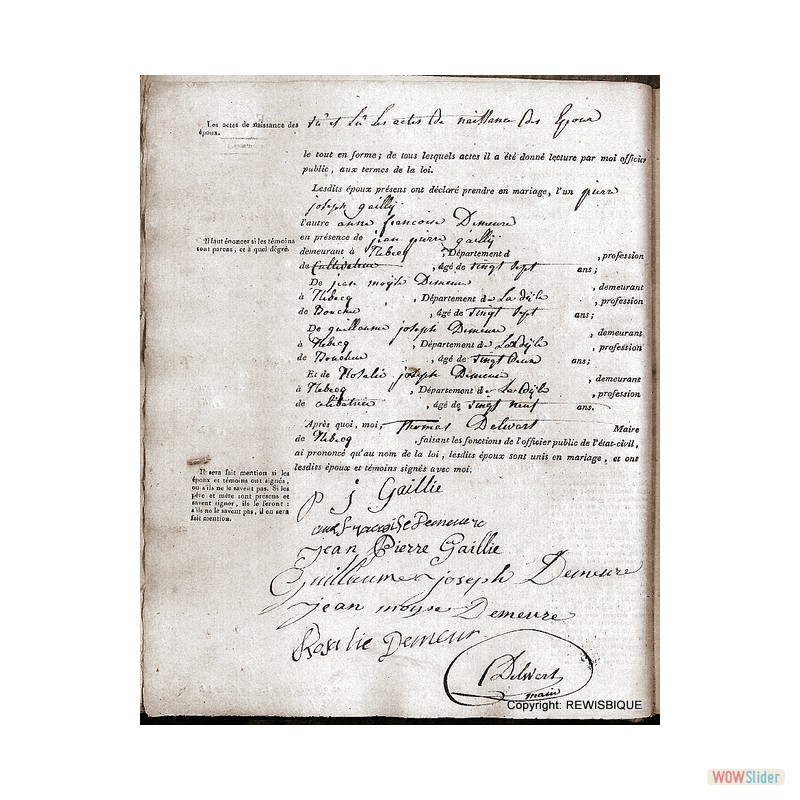 Les actes de naissance des
époux.
Vu et lu les actes de naissance des Epoux
le tout en forme ; de tous lesquels actes il a été donné lecture par moi officier
public, aux termes de la loi.
Lesdits époux présens ont déclaré prendre en mariage, l'un pierre
joseph gailly
l'autre anne francoise Demeure
en présence de jean pierre gailly
Il faut énoncer si les témoins
sont parens, et à quel dégré.
demeurant à Rebecq , Département d , profession
de Cultivateur , âgé de vingt sept ans ;
De jean moÿse Demeure , demeurant
à Rebecq , Département de La dÿle , profession
de Boucher , âgé de vingt sept ans ;
De guillaume joseph Demeure , demeurant
à Rebecq , Département de La dÿle , profession
de Boucher , âgé de vingt ans ;
Et de Rosalie joseph Demeure , demeurant
à Rebecq , Département de La dÿle , profession
de celibatrice , âgé de vingt neuf ans.
Après quoi, moi, Thomas Delwart Maire
de Rebecq , faisant les fonctions de l'officier public de l'état-civil,
ai prononcé qu'au nom de la loi, lesdits époux sont unis en mariage, et ont
lesdits époux et témoins signés avec moi.
Il sera fait mention si les
époux et témoins ont signés,
ou s'ils ne le savent pas. Si les
père et mère sont présens et
savent signer, ils le feront :
s'ils ne le savent pas, il en sera
fait mention.
p j Gaillie
anne Francoise Demeure
jean Pierre Gaillie
Guillaume joseph Demeure
jean moyse Demeure
Rosalie Demeur
Delwart
maire
Copyright: REWISBIQUE
WOWSlider